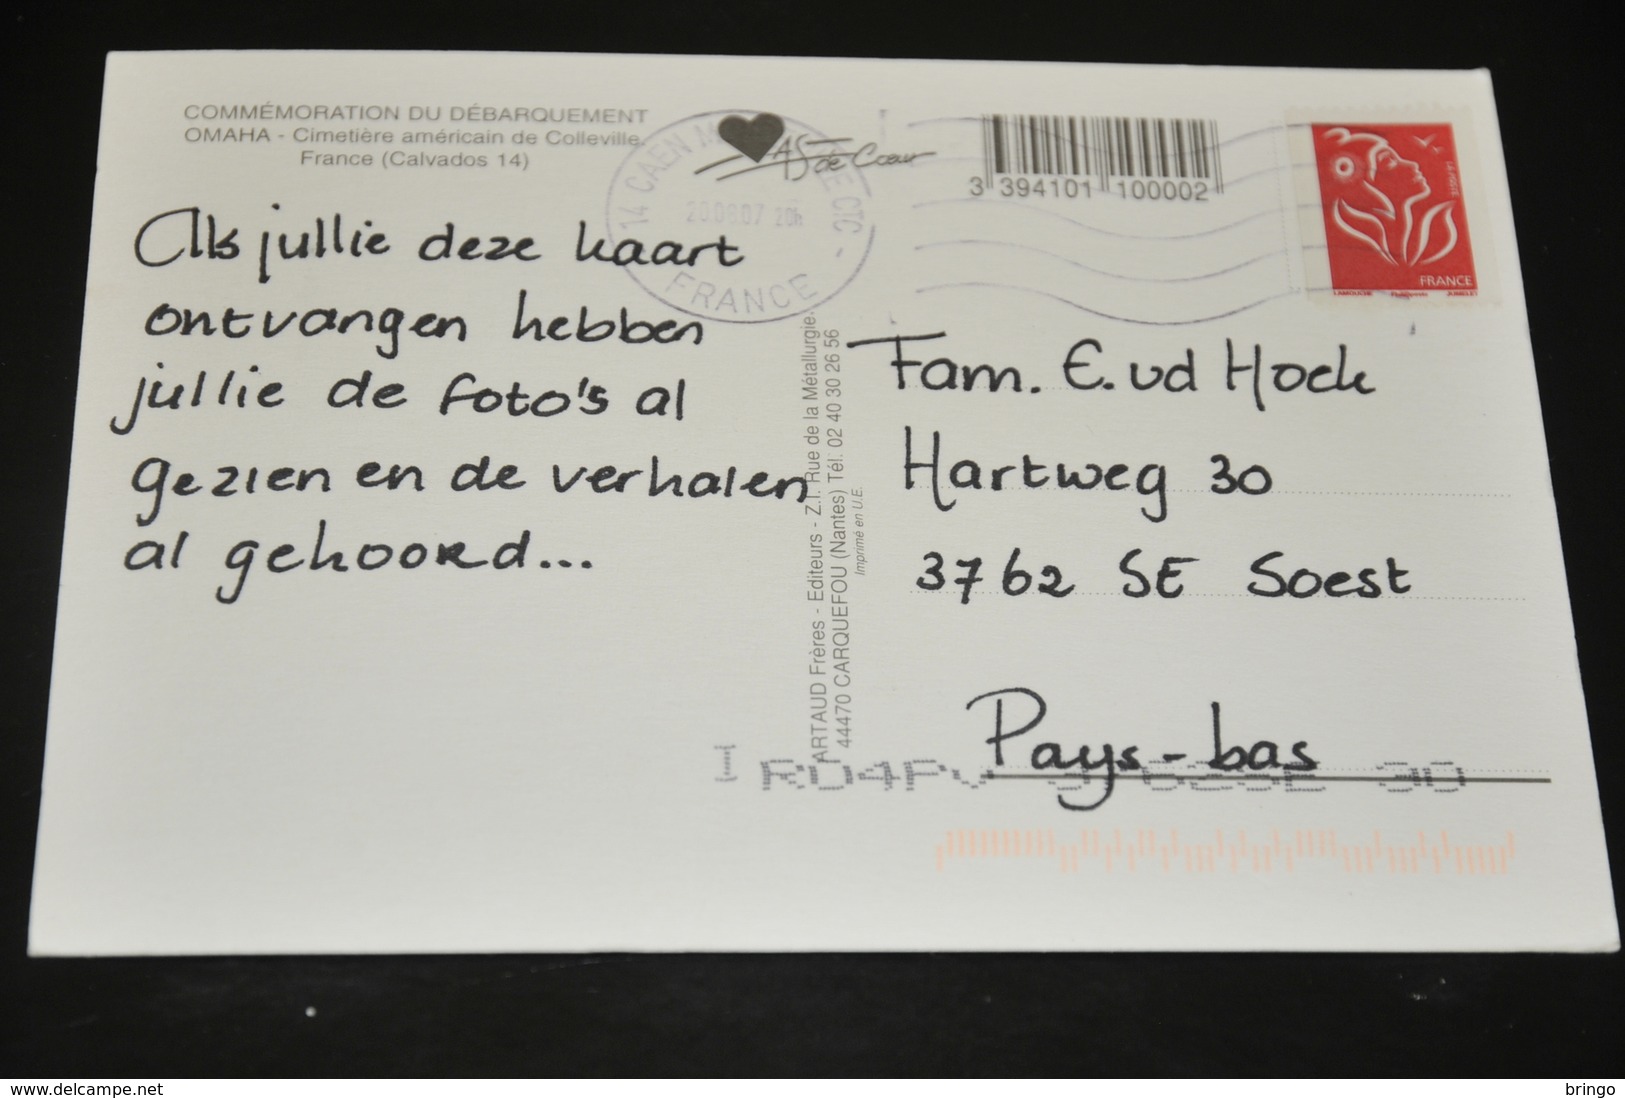 COMMÉMORATION DU DÉBARQUEMENT
OMAHA - Cimetière américain de Colleville.
France (Calvados 14)
AS de Cœur
14 CAEN CTC -
200807 20h
FRANCE
3 394101 100002
FRANCE
LAMOUCHE JUMELET
Als jullie deze kaart
ontvangen hebben
jullie de foto's al
gezien en de verhalen
al gehoord...
ARTAUD Frères - Editeurs - Z.I. Rue de la Métallurgie
44470 CARQUEFOU (Nantes) Tél. 02 40 30 26 56
Imprimé en U.E.
Fam. E. vd Hoek
Hartweg 30
3762 SE Soest
Pays-bas
www.delcampe.net
bringo